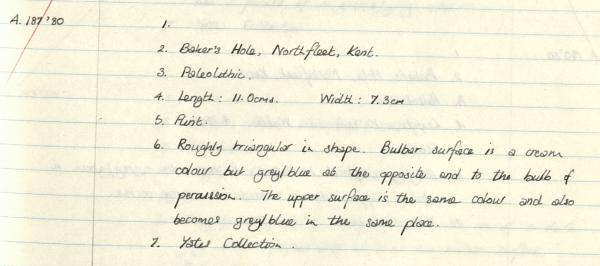 A.187'80
1.
2. Baker's Hole, Northfleet, Kent.
3. Paleolothic.
4. Length: 11.0cms. Width: 7.3cm
5. Flint.
6. Roughly triangular in shape. Bulbar surface is a cream
colour but grey/blue at the opposite end to the bulb of
percussion. The upper surface is the same colour and also
becomes grey/blue in the same place.
7. Yates Collection.